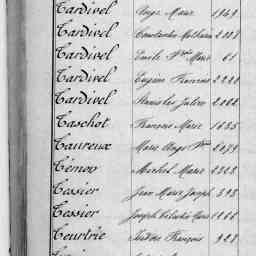 Tardivel Ange Marie 1949
Tardivel Constantin Mathurin 2308
Tardivel Emile Marie 61
Tardivel Eugène François 2220
Tardivel Stanislas 2004
Taschot François Marie 1635
Taureux Marie Ange 2079
Témoy Marie 2328
Tessier Jean Marie Joseph 393
Tessier Joseph Marie 1266
Teurtrie François 928